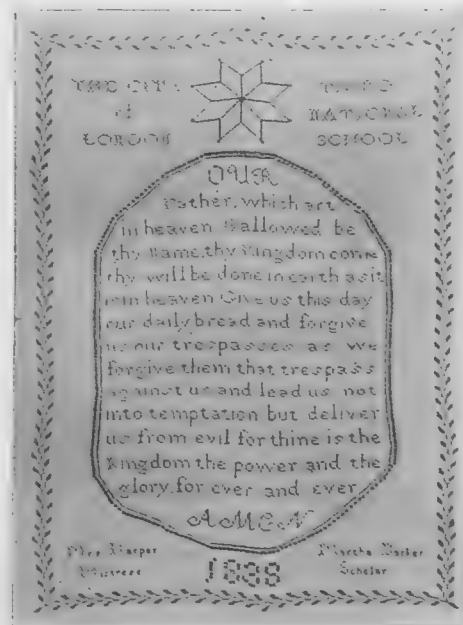 THE CITY
of
LONDON
NATIONAL
SCHOOL
OUR
Father, which art
in heaven Hallowed be
thy Name, thy Kingdom come
thy will be done in earth as it
is in heaven Give us this day
our daily bread and forgive
us our trespasses as we
forgive them that trespass
against us and lead us not
into temptation but deliver
us from evil for thine is the
Kingdom the power and the
glory, for ever and ever
AMEN
Harper
Mistress
Martha
Scholar
1838